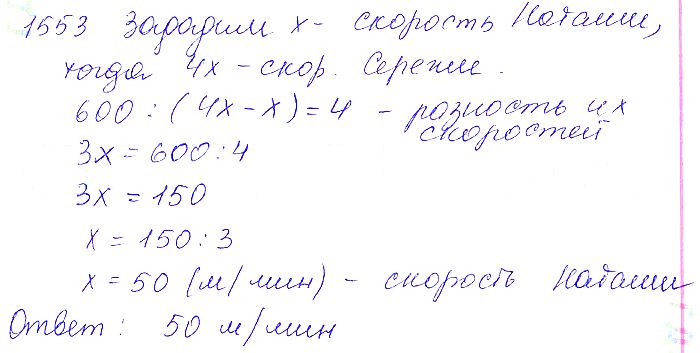 1553 Зададим х - скорость Наташи,
тогда 4х - скор. Сережи.
600 : (4х - х) = 4 - разность их скоростей
3х = 600 : 4
3х = 150
х = 150 : 3
х = 50 (м/мин) - скорость Наташи
Ответ: 50 м/мин